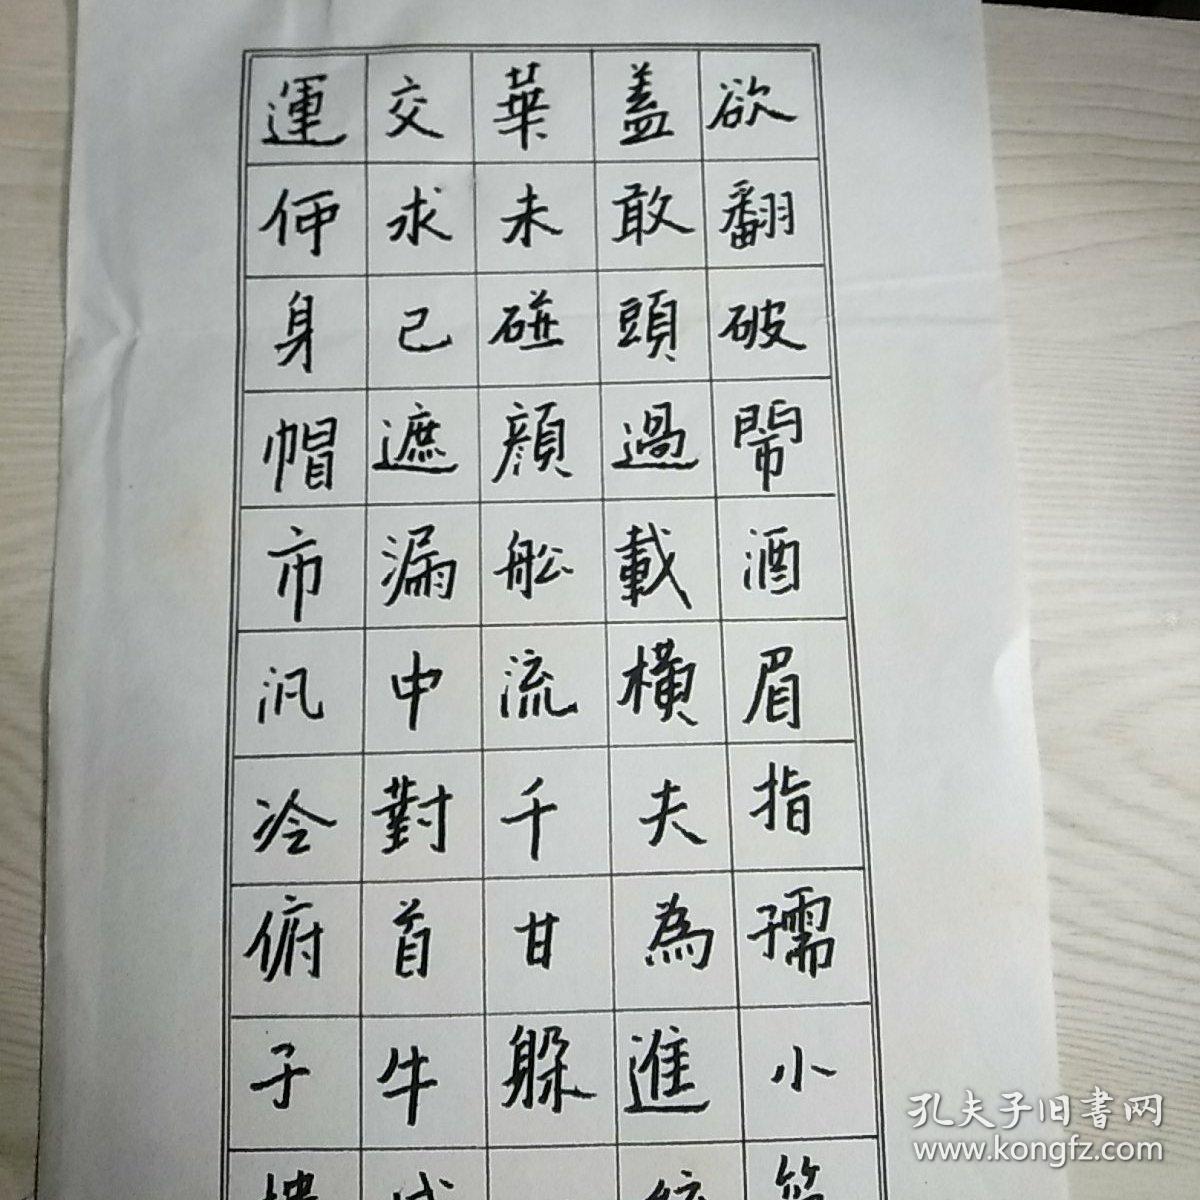 運交華蓋欲
何求未敢翻
身己碰頭破
帽遮顏過鬧
市漏舩載酒
汎中流橫眉
冷對千夫指
俯首甘為孺
子牛躲進小
孔夫子旧書网
www.kongfz.com